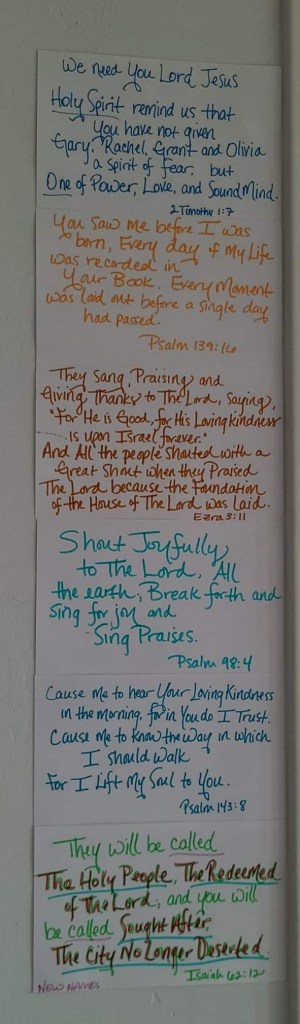 We need You Lord Jesus
Holy Spirit remind us that
You have not given
Gary, Rachel, Grant and Olivia
a spirit of fear, but
One of Power, Love, and Sound Mind.
2 Timothy 1:7
You saw me before I was
born, Every day of My Life
was recorded in
Your Book. Every Moment
was laid out before a single day
had passed.
Psalm 139:16
They Sang, Praising and
Giving Thanks to The Lord, saying,
"For He is Good, for His Lovingkindness
is upon Israel forever."
And All the people shouted with a
Great Shout when they Praised
The Lord because the Foundation
of the House of The Lord was laid.
Ezra 3:11
Shout Joyfully
to The Lord, All
the earth; Break forth and
Sing for joy and
Sing Praises.
Psalm 98:4
Cause me to hear Your Loving Kindness
in the morning, for in You do I Trust.
Cause me to know the Way in which
I should walk
For I Lift My Soul to You.
Psalm 143:8
They will be called
The Holy People, The Redeemed
of The Lord, and you will
be called Sought After,
The City No Longer Deserted.
Isaiah 62:12
NEW NAMES